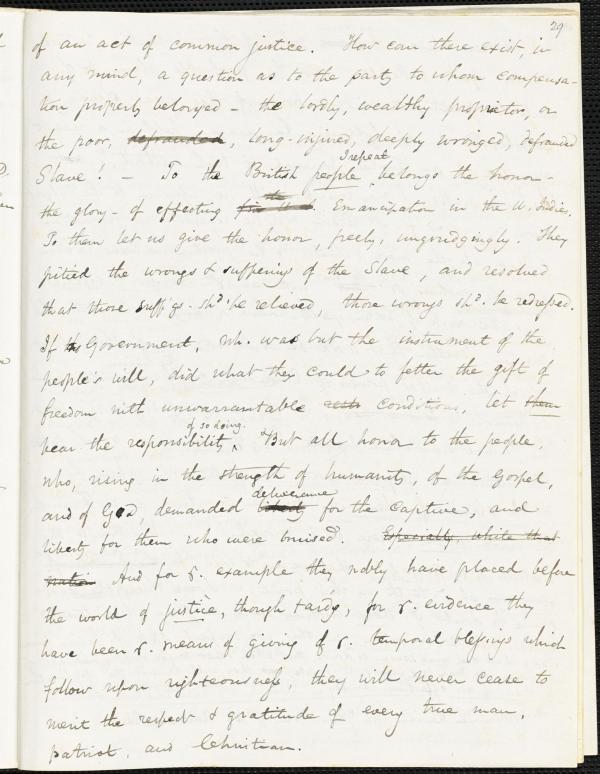 29
of an act of common justice. How can there exist, in
any mind, a question as to the party to whom compensa-
tion properly belonged - the lordly, wealthy proprietor, or
the poor, defrauded, long-injured, deeply wronged, defrauded
Slave! - To the British people, I repeat, belongs the honor -
the glory - of effecting the Emancipation in the W. Indies.
To them let us give the honor, freely, ungrudgingly. They
pitied the wrongs & sufferings of the Slave, and resolved
that those suffgs. shd. be relieved, those wrongs shd. be redressed.
If Government, wh. was but the instrument of the
people's will, did what they could to fetter the gift of
freedom with unwarrantable conditions, let them
bear the responsibility of so doing. But all honor to the people,
who, rising in the strength of humanity, of the Gospel,
and of God, demanded liberty deliverance for the captive, and
liberty for them who were bruised. Especially, while that
nation And for ye. example they nobly have placed before
the world of justice, though tardy, for ye. evidence they
have been ye. means of giving of ye. temporal blessings which
follow upon righteousness, they will never cease to
merit the respect & gratitude of every true man,
patriot, and Christian.